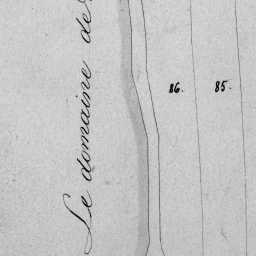 Le domaine de
86.
85.